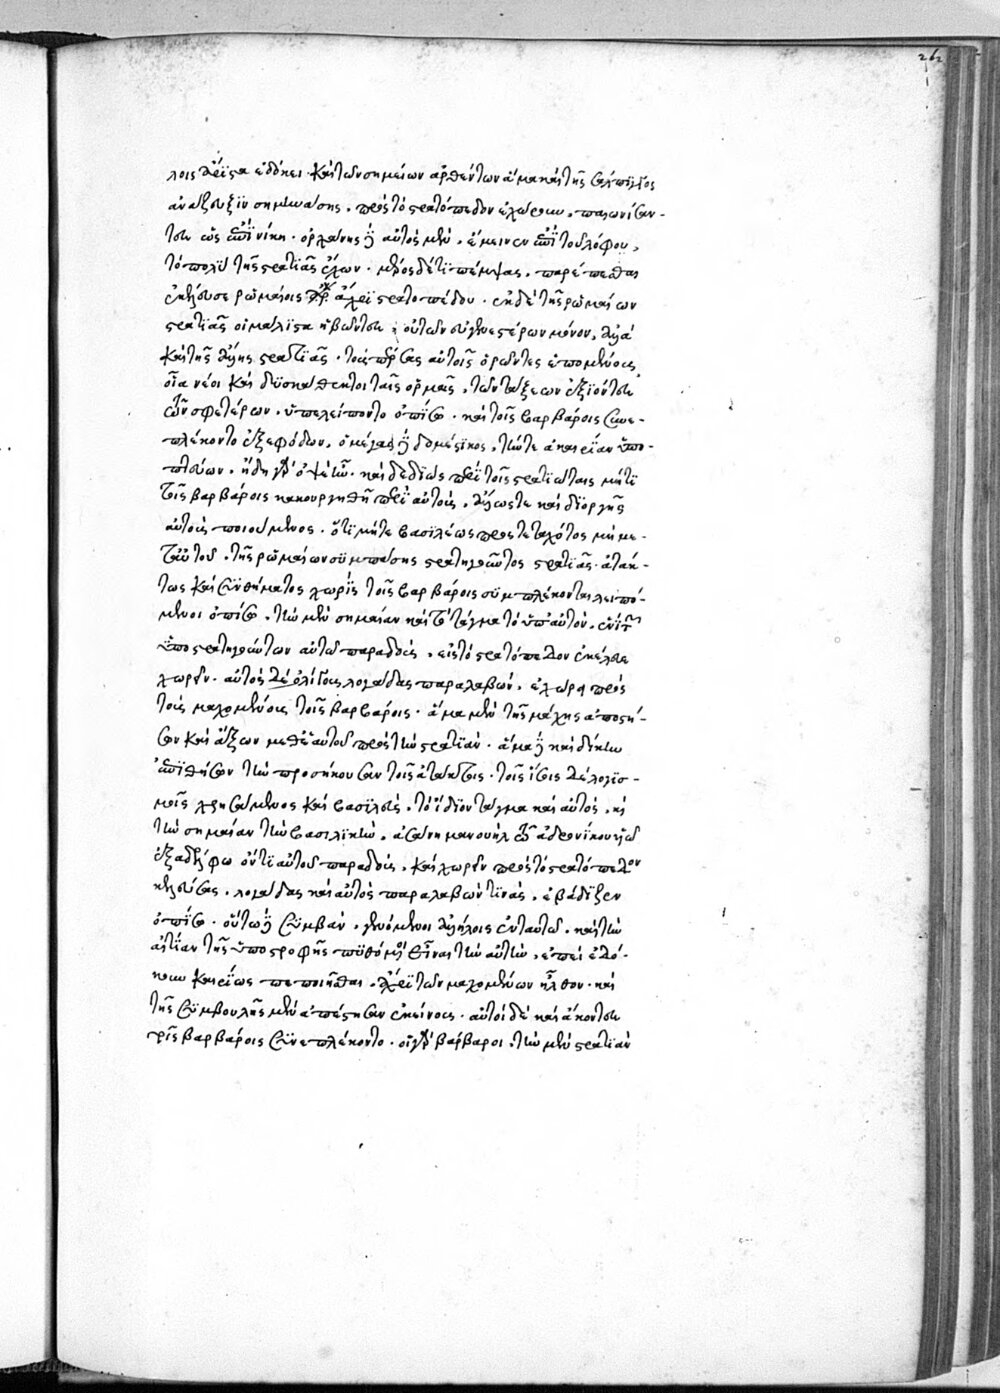 262
λοις ἄριστα ἐδόκει· καὶ τῶν σημείων ἀρθέντων ἅμα καὶ τῆς σάλπιγγος
ἀνάζευξιν σημηνάσης, πρὸς τὸ στρατόπεδον ἐχώρουν, παιωνίσαν-
τες ὡς ἐπὶ νίκη· ὀρχάνης δὲ αὐτὸς μὲν, ἔμεινεν ἐπὶ τοῦ λόφου,
τὸ πολὺ τῆς στρατιᾶς ἔχων· μέρος δέ τι πέμψας, παρέπεσθαι
ἐκέλευσε ῥωμαίοις ἄχρι στρατοπέδου· ἐκ δὲ τῆς ῥωμαίων
στρατιᾶς οἱ μάλιστα ἡβῶντες, οὐ τῶν εὐγενεστέρων μόνον, ἀλλὰ
καὶ τῆς ἄλλης στρατιᾶς· τοὺς πέρσας αὐτοῖς ὁρῶντες ἑπομένους,
οἷα νέοι καὶ δυσκάθεκτοι ταῖς ὁρμαῖς, τῶν τάξεων ἐξιόντες
τῶν σφετέρων, ὑπελείποντο ὀπίσω· καὶ τοῖς βαρβάροις συνε-
πλέκοντο ἐξ ἐφόδων, ὁ μέγας δὲ δομέστικος, τήν τε ἀκαιρίαν ὑπο-
πτεύων, ἤδη γὰρ ὀψὲ ἦν· καὶ δεδιὼς περὶ τοῖς στρατιώταις μή τι
τοῖς βαρβάροις κακουργηθῇ περὶ αὐτοὺς, ἄλλως τε καὶ δι' ὀργῆς
αὐτοὺς ποιούμενος· ὅτι μήτε βασιλέως προστεταχότος μήτε
ταὐτοῦ, τῆς ῥωμαίων συμπάσης στρατηγοῦντος στρατιᾶς· ἀτάκ-
τως καὶ συνθήματος χωρὶς τοῖς βαρβάροις συμπλέκονται λειπό-
μενοι ὀπίσω, τὴν μὲν σημαίαν καὶ τὸ τάγμα τὸ ὑπ' αὐτὸν, ἑνὶ τῶν
ὑποστρατηγούντων αὐτῶ παραδοὺς, εἰς τὸ στρατόπεδον ἐκέλευε
χωρεῖν· αὐτὸς δὲ ὀλίγους λογάδας παραλαβὼν, ἐχώρει πρὸς
τοὺς μαχομένους τοῖς βαρβάροις· ἅμα μὲν τῆς μάχης ἀποστή-
σων καὶ ἄξων μεθ' ἑαυτοῦ πρὸς τὴν στρατιὰν· ἅμα δὲ καὶ δίκην
ἐπιθήσων τὴν προσήκουσαν τοῖς ἀτάκτοις· τοῖς ἴσοις δὲ λογισ-
μοῖς χρησάμενος καὶ βασιλεὺς, τὸ ἴδιον τάγμα καὶ αὐτὸς, καὶ
τὴν σημαίαν τὴν βασιλικὴν, ἀσάνη μανουὴλ τῶ ἀνδρονίκου τοῦ
ἐξαδέλφω ὄντι αὐτοῦ παραδοὺς, καὶ χωρεῖν πρὸς τὸ στρατόπεδον
κελεύσας, λογάδας καὶ αὐτὸς παραλαβών τινας, ἐβάδιζεν
ὀπίσω· οὕτω δὲ συμβὰν, γενόμενοι ἀλλήλοις ἐν ταυτῶ, καὶ τὴν
αἰτίαν τῆς ὑποστροφῆς πυθόμενοι εἶναι τὴν αὐτὴν, ἐπεὶ ἐδό-
κουν καιρίως πεποιῆσθαι, ἄχρι τῶν μαχομένων ἦλθον· καὶ
τῆς συμβουλῆς μὲν ἀπέστησαν ἐκείνους· αὐτοὶ δὲ καὶ ἄκοντες
τοῖς βαρβάροις συνεπλέκοντο· οἱ γὰρ βάρβαροι, τὴν μὲν στρατιὰν